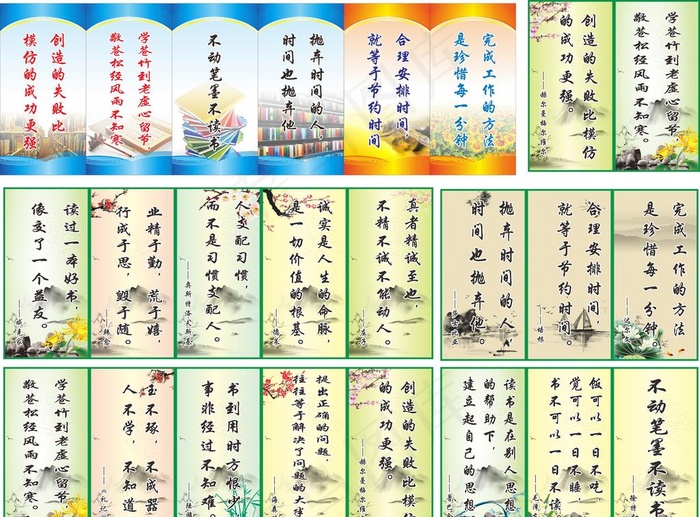 创造的失败比
模仿的成功更强
学苍竹到老虚心留节
敬苍松经风雨不知寒
不动笔墨不读书
抛弃时间的人,
时间也抛弃他
合理安排时间,
就等于节约时间
完成工作的方法
是珍惜每一分钟
创造的失败比模仿
的成功更强。
——赫尔曼梅尔维尔
学苍竹到老虚心留节,
敬苍松经风雨不知寒。
读过一本好书,
像交了一个益友。
业精于勤,荒于嬉,
行成于思,毁于随。
——韩愈
人支配习惯
而不是习惯支配人。
——奥斯特洛夫斯基
诚实是人生的命脉,
是一切价值的根基。
真者精诚至也,
不精不诚不能动人。
抛弃时间的人,
时间也抛弃他。
——莎士比亚
合理安排时间,
就等于节约时间。
——培根
完成工作的方法
是珍惜每一分钟。
学苍竹到老虚心留节,
敬苍松经风雨不知寒。
玉不琢,不成器
人不学,不知道
书到用时方恨少
事非经过不知难。
提出正确的问题,
往往等于解决了问题的大半
创造的失败比模仿
的成功更强。
——赫尔曼梅尔
读书是在别人思想
的帮助下,
建立起自己的思想
饭可以一日不吃,
觉可以一日不睡,
书不可以一日不读
不动笔墨不读书
——徐特